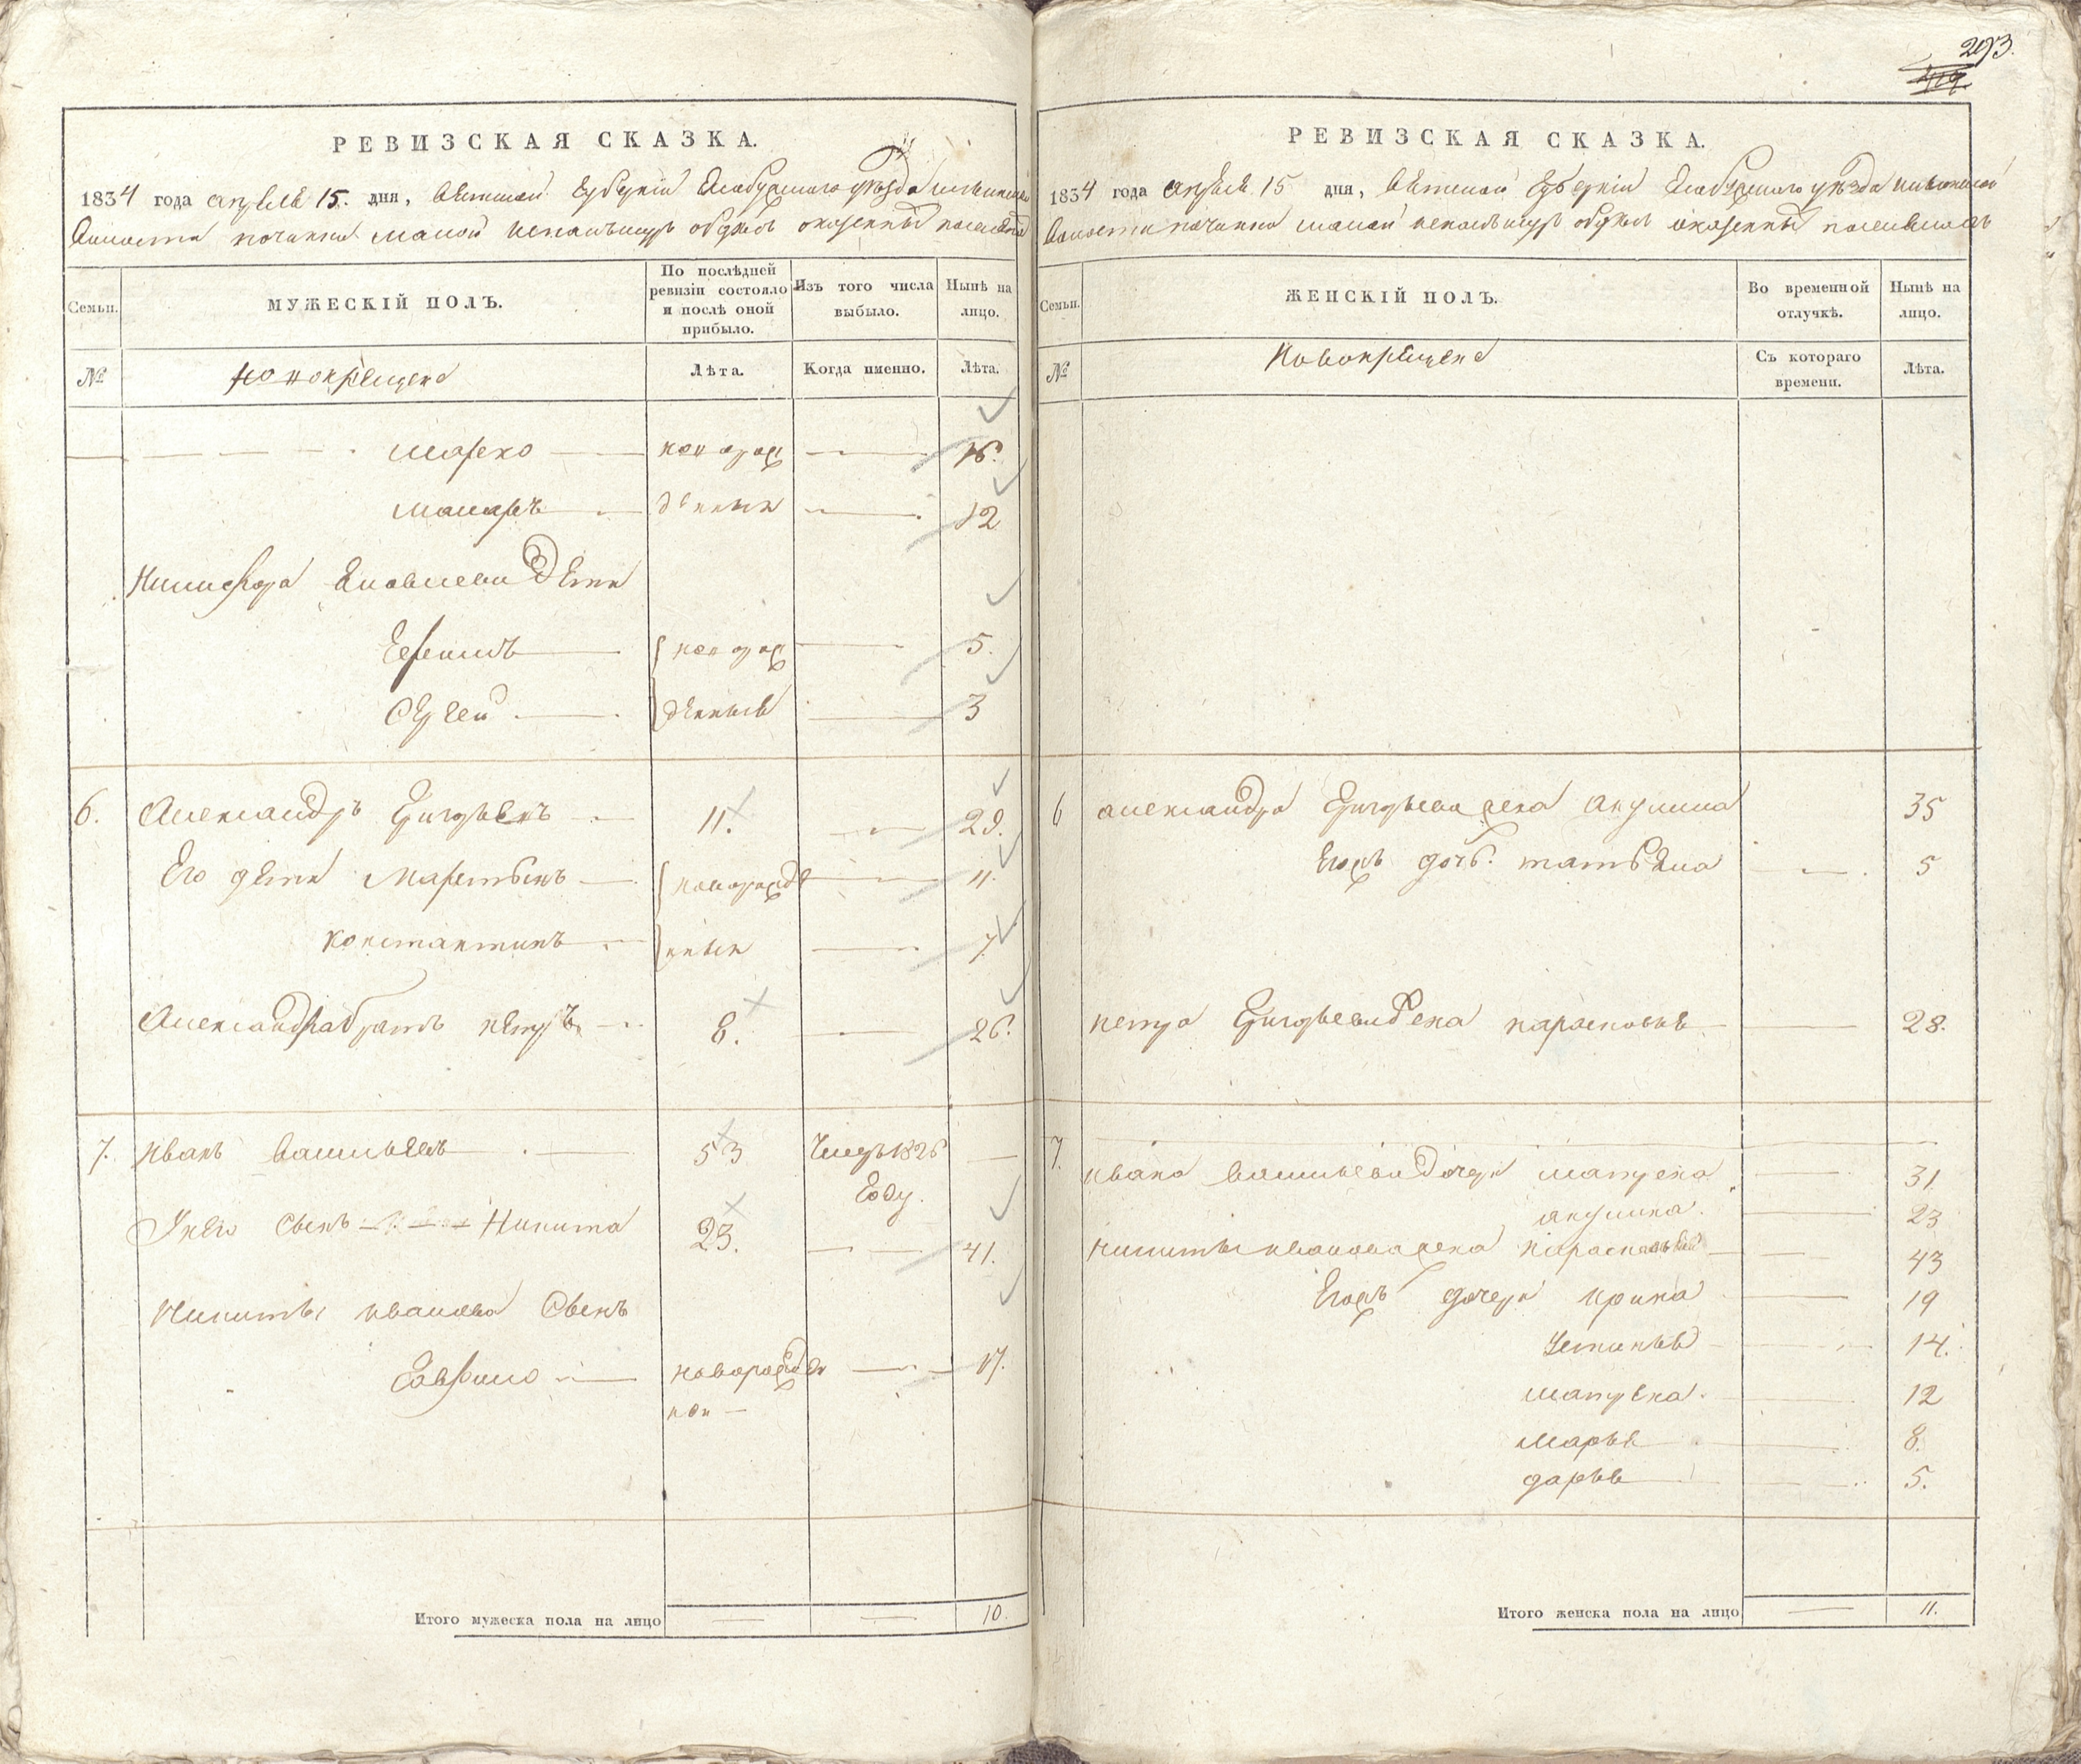 293.
РЕВИЗСКАЯ СКАЗКА.
1834 года апреля 15. дня, Вятской губернии Елабужскаго уѣзда
волости починка малой
Семьи.
МУЖЕСКІЙ ПОЛЪ.
По послѣдней ревизіи состояло и послѣ оной прибыло.
Изъ того числа выбыло.
Нынѣ на лицо.
№
новокрещена
Лѣта.
Когда именно.
Лѣта.
Марко новорож 16.
Макаръ денныя 12
Никифора Яковлева дети
Ефимъ новорож 5.
Сергей денныя 3
6. Александръ Григорьевъ 11. 29.
Его дети Мартынъ новорожде 11.
Константинъ нныи 7.
Александра братъ Петръ 8. 26.
7. Иванъ Васильевъ 53 Умеръ 1826
году.
У него сынъ Никита 23. 41.
Никиты Иванова сынъ
Гаврило новорожден 17.
нои
Итого мужеска пола на лицо 10.
РЕВИЗСКАЯ СКАЗКА.
1834 года апреля 15 дня, Вятской губернии Елабужскаго уѣзда
волости починка малой
Семьи.
ЖЕНСКІЙ ПОЛЪ.
Во временной отлучкѣ.
Нынѣ на лицо.
№
Новокрещена
Съ котораго времени.
Лѣта.
6 Александра Григорьева жена Акулина 35
Егожъ дочь. Татьяна 5
Петра Григорьева жена Парасковья 28.
7. Ивана Васильева дочери Матрена 31
Акулина. 23
Никиты Иванова жена Парасковья 43
Егожъ дочери Ирина 19
Устинья 14.
Матрена. 12
Марья 8.
Дарья 5.
Итого женска пола на лицо 11.